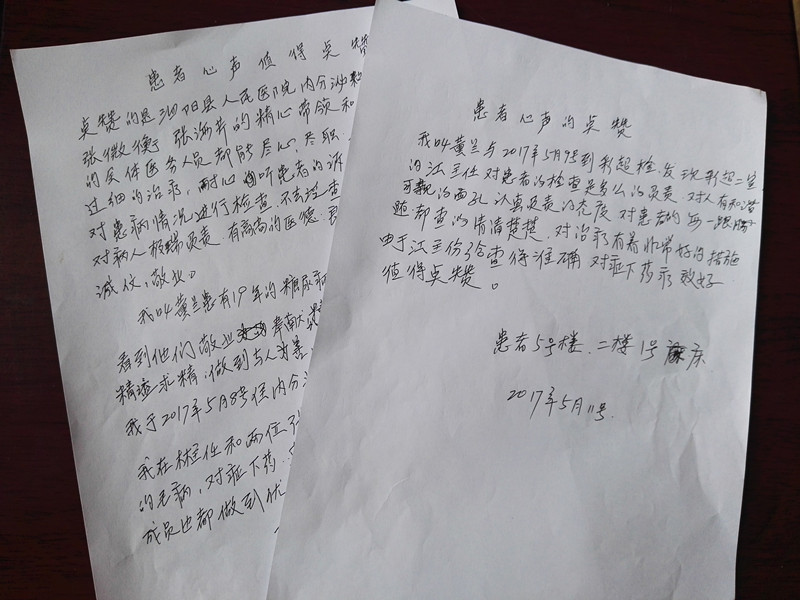 患者心声值得点赞
点赞的是泗阳县人民医院内分泌
张微衡 张海芹的精心带领和
的全体医务人员都能尽心尽职
过细的治疗,耐心听患者的诉
对患病情况进行检查.不去过查
对病人极端负责 有高尚的医德
诚仪,敬业。
我叫黄兰患有19年的糖尿病
看到他们敬业
精益求精,做到与人为善
我于2017年5月8号住内分
我在林主任和两位
的毛病,对症下药
成员也都做到优
患者心声的点赞
我叫黄兰与2017年5月9号到彩超检.发现彩超二室
的江主任对患者的检查是多么的负责.对人有和蔼
可亲的面孔 认真负责的态度 对患者的每一
题都查的清清楚楚.对治疗有着非常好的措施
由于江主任给查得准确 对症下药疗效好
值得点赞。
患者5号楼.二楼1号床
2017年5月11号.